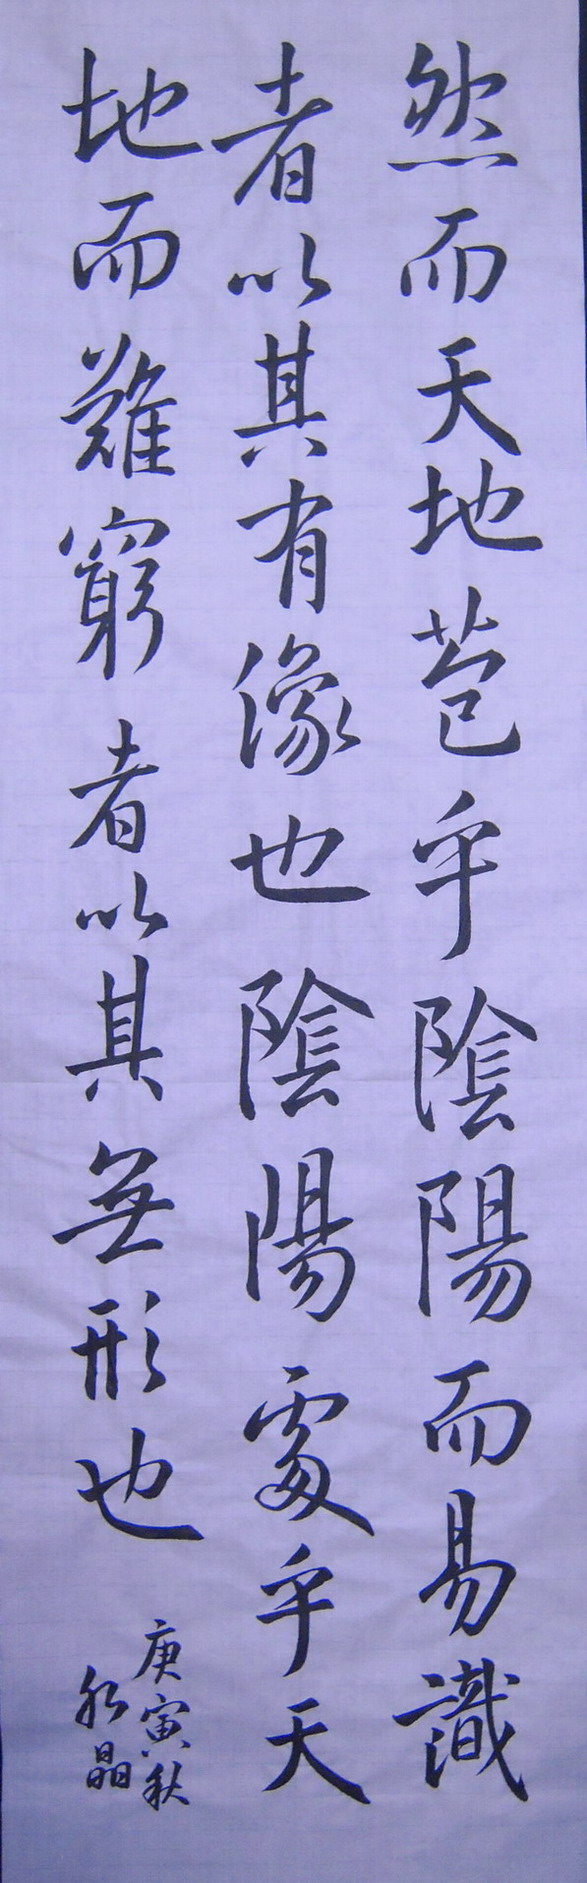 然而天地苞乎陰陽而易識
者以其有像也陰陽處乎天
地而難窮者以其無形也
庚寅秋
永晶